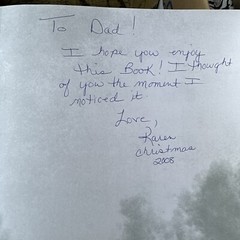 To Dad!
I hope you enjoy
this Book! I thought
of you the moment I
noticed it.
Love,
Karen
Christmas
2008